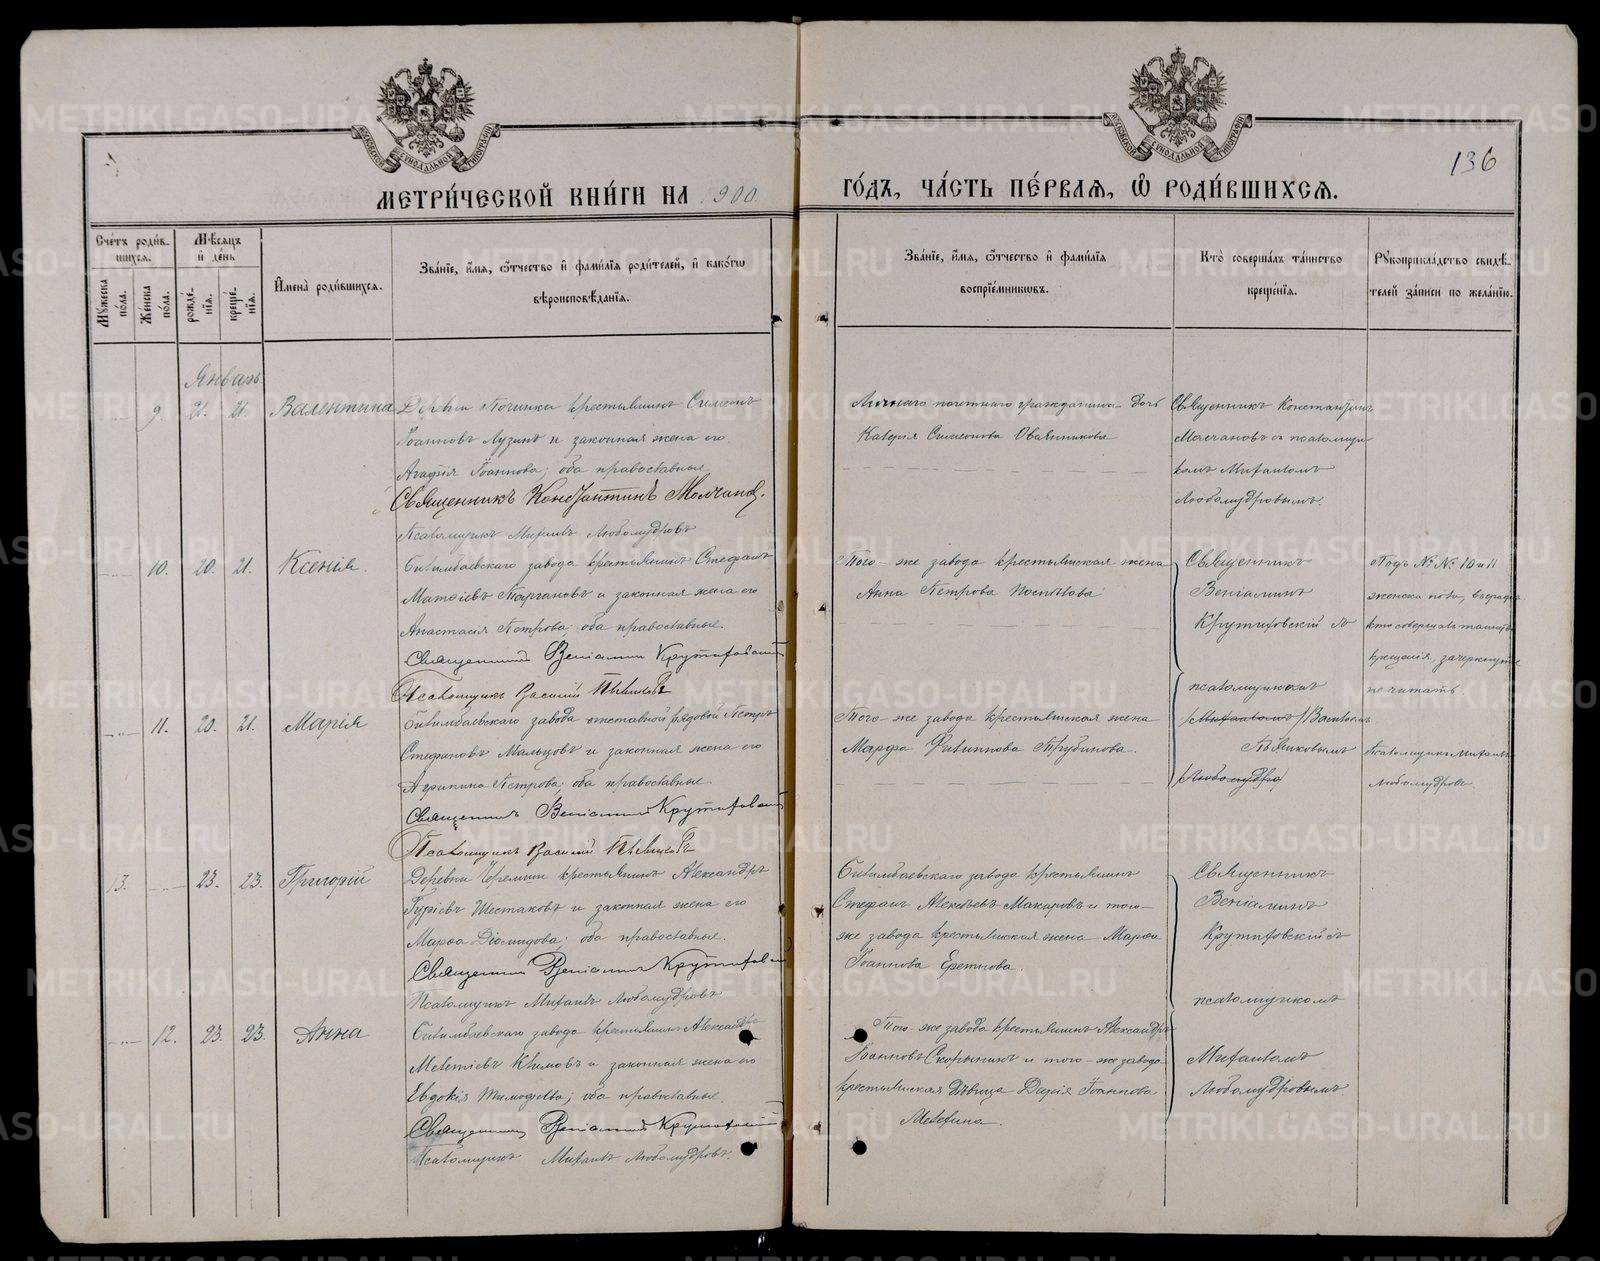 136
МЕТРИ́ЧЕСКОЙ КНИ́ГИ НА 1900 ГО́ДЪ, ЧА́СТЬ ПЕ́РВАЯ, Ѡ҆ РОДИ́ВШИХСЯ.
Сче́тъ роди́в-
шихся.
Мꙋ́жеска по́ла.
Же́нска по́ла.
Мѣ́сяцъ и҆ де́нь
рожде́нїя.
креще́нїя.
И҆мена̀ роди́вшихся.
Зва́нїе, и҆́мя, ѻ҆́тчество и҆ фами́лїя роди́телей, и҆ како́гѡ
вѣроисповѣ́данїя.
Зва́нїе, и҆́мя, ѻ҆́тчество и҆ фами́лїя
воспрїе́мникѡвъ.
Кто̀ соверша́лъ та́инство
креще́нїя.
Рꙋкоприкла́дство свидѣ́-
телей за́писи по жела́нїю.
Январь
9. 21. 21. Валентина
Деревни Починка крестьянинъ Симеонъ
Іоанновъ Лузинъ и законная жена его
Агафія Іоаннова; оба православные
Священникъ Константинъ Молчановъ.
Псаломщикъ Михаилъ Любомудровъ
Личнаго почетнаго гражданина дочь
Валерія Симеонова Овчинникова
Священникъ Константинъ
Молчановъ съ псаломщи
комъ Михаиломъ
Любомудровымъ.
10. 20. 21. Ксенія.
Билимбаевскаго завода крестьянинъ Стефанъ
Матѳіевъ и законная жена его
Анастасія Петрова; оба православные.
Священникъ Веніаминъ Крутиховскій
Псаломщикъ Василій
Того-же завода крестьянская жена
Анна Петрова Поспѣлова
Священникъ
Веніаминъ
Крутиховскій съ
псаломщикомъ
(Михаиломъ) Василіемъ
(Любомудро)
Подъ №№ 10 и 11
женска пола, въ графѣ
кто совершалъ таинство
крещенія, зачеркнутое
не читать.
Псаломщикъ Михаилъ
Любомудровъ
11. 20. 21. Марія
Билимбаевскаго завода отставной рядовой Петръ
Стефановъ Мальцовъ и законная жена его
Агрипина Петрова; оба православные.
Священникъ Веніаминъ Крутиховскій
Псаломщикъ Василій
Того-же завода крестьянская жена
Марфа Филиппова Трубинова.
13. 23. 23. Григорій
Деревни Черемши крестьянинъ Александръ
Гуріевъ Шестаковъ и законная жена его
Марѳа Діомидова; оба православные.
Священникъ Веніаминъ Крутиховскій
Псаломщикъ Михаилъ Любомудровъ
Билимбаевскаго завода крестьянинъ
Стефанъ Алексѣевъ Макаровъ и того-
же завода крестьянская жена Марѳа
Іоаннова Еретнова.
Священникъ
Веніаминъ
Крутиховскій съ
псаломщикомъ
Михаиломъ
Любомудровымъ.
12. 23. 23. Анна
Билимбаевскаго завода крестьянинъ Александръ
Мелетіевъ Климовъ и законная жена его
Евдокія Тимофеева; оба православные.
Священникъ Веніаминъ Крутиховскій
Псаломщикъ Михаилъ Любомудровъ.
Того-же завода крестьянинъ Александръ
Іоанновъ Скорынинъ и того-же завода
крестьянская дѣвица Дарія Іоаннова
Мелехина.
METRIKI.GASO-URAL.RU